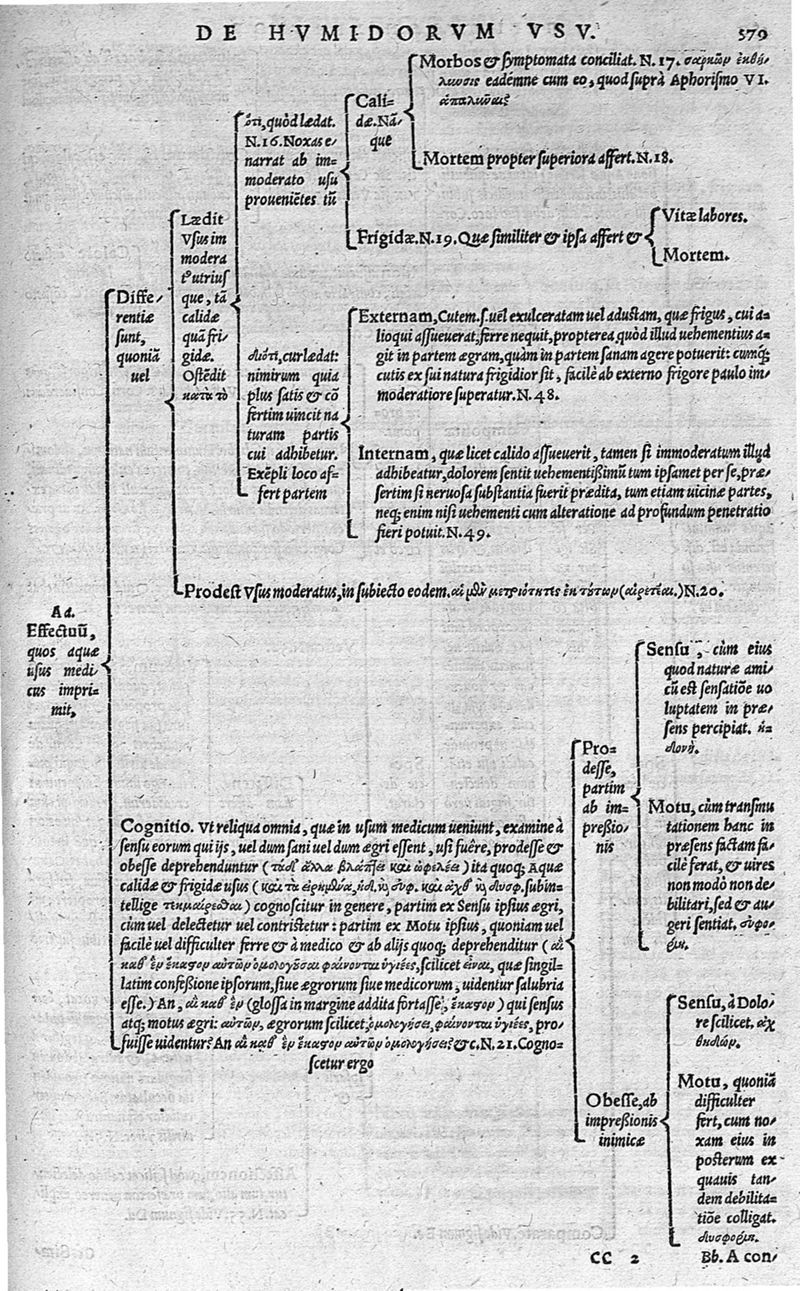 DE HVMIDORVM VSV. 579
Morbos & symptomata conciliat. N. 17. σαρκῶν ἐκθή⸗
λωσις eadémne cum eo, quod suprà Aphorismo VI.
ἁπαλωῶαι?
Cali⸗
dæ. Nã⸗
que
Mortem propter superiora affert. N. 18.
ὅτι, quòd lædat.
N. 16. Noxas e⸗
narrat ab im⸗
moderato usu
proueniẽtes tũ
Frigidæ. N. 19. Quæ similiter & ipsa affert &
Vitæ labores.
Mortem.
Lædit
Vsus im
modera
tꝰ utriusꝗ
que, tã
calidæ
quã fri⸗
gidæ.
Ostẽdit
κατὰ τὸ
Diffe⸗
rentiæ
sunt,
quoniã
uel
διότι, cur lædat:
nimirum quia
plus satis & cõ
fertim uincit na
turam partis
cui adhibetur.
Exẽpli loco af⸗
fert partem
Externam, Cutem. s. uel exulceratam uel adustam, quæ frigus, cui a⸗
lioqui assueuerat, ferre nequit, propterea, quòd illud uehementius a⸗
git in partem ægram, quàm in partem sanam agere potuerit: cumq;
cutis ex sui natura frigidior sit, facilè ab externo frigore paulo im⸗
moderatiore superatur. N. 48.
Internam, quæ licet calido assueuerit, tamen si immoderatum illud
adhibeatur, dolorem sentit uehementißimũ tum ipsamet per se, præ⸗
sertim si neruosa substantia fuerit prædita, tum etiam uicinæ partes,
neq; enim nisi uehementi cum alteratione ad profundum penetratio
fieri potuit. N. 49.
Prodest Vsus moderatus, in subiecto eodem. αἱ μὲν μετριότητες ἐκ τούτων (αἱρετέαι.) N. 20.
Ad.
Effectuũ,
quos aquæ
usus medi⸗
cus impri⸗
mit,
Cognitio. Vt reliqua omnia, quæ in usum medicum ueniunt, examine à
sensu eorum qui ijs, uel dum sani uel dum ægri essent, usi fuêre, prodesse &
obesse deprehenduntur (τὰ δὲ ἄλλα βλάπτει καὶ ὠφελέει) ita quoq; Aquæ
calidæ & frigidæ usus (καὶ τὰ εἰρημένα, ἡδ. ἢ συφ. καὶ ἀχθ. ἢ δυσφ. subin⸗
tellige τεκμαίρεσθαι) cognoscitur in genere, partim ex Sensu ipsius ægri,
cùm uel delectetur uel contristetur: partim ex Motu ipsius, quoniam uel
facilè uel difficulter ferre & à medico & ab alijs quoq; deprehenditur (αἱ
καθ' ἓν ἕκαστον αὐτῶν ὁμολογοῦσαι φαίνονται ὑγιέες, scilicet εἶναι, quæ singil⸗
latim confeßione ipsorum, siue ægrorum siue medicorum, uidentur salubria
esse.) An, αἱ καθ' ἓν (glossa in margine addita fortasse, ἕκαστον) qui sensus
atq; motus ægri: αὐτῶν, ægrorum scilicet, ὁμολογήσει, φαίνονται ὑγιέες, pro⸗
fuisse uidentur? An αἱ καθ' ἓν ἕκαστον αὐτῶν ὁμολογήσει? &c. N. 21. Cogno⸗
scetur ergo
Pro⸗
desse,
partim
ab im⸗
preßio⸗
nis
Sensu, cùm eius
quod naturæ ami⸗
cũ est sensatiõe uo
luptatem in præ⸗
sens percipiat. ἡ⸗
δονή.
Motu, cùm transmu
tationem hanc in
præsens factam fa⸗
cilè ferat, & uires
non modò non de⸗
bilitari, sed & au⸗
geri sentiat. εὐφο⸗
ρίη.
Obesse, ab
impreßionis
inimicæ
Sensu, à Dolo⸗
re scilicet. ἀχ
θηδών.
Motu, quoniã
difficulter
fert, cum no⸗
xam eius in
posterum ex
quauis tan⸗
dem debilita⸗
tiõe colligat.
δυσφορίη.
CC 2 Bb. A con⸗